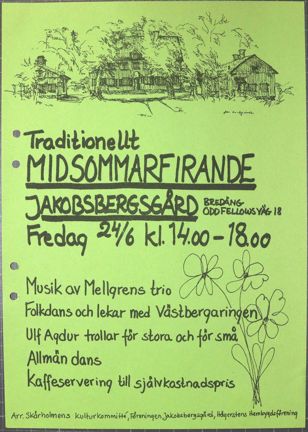 Traditionellt
MIDSOMMARFIRANDE
JAKOBSBERGSGÅRD BREDÄNG
ODDFELLOWSVÄG 18
Fredag 24/6 kl. 14.00-18.00
Musik av Mellgrens trio
Folkdans och lekar med Västbergaringen
Ulf Agdur trollar för stora och för små
Allmän dans
Kaffeservering till självkostnadspris
Arr. Skärholmens Kulturkommitté, Föreningen Jakobsbergsgård, Hägerstens Hembygdsförening